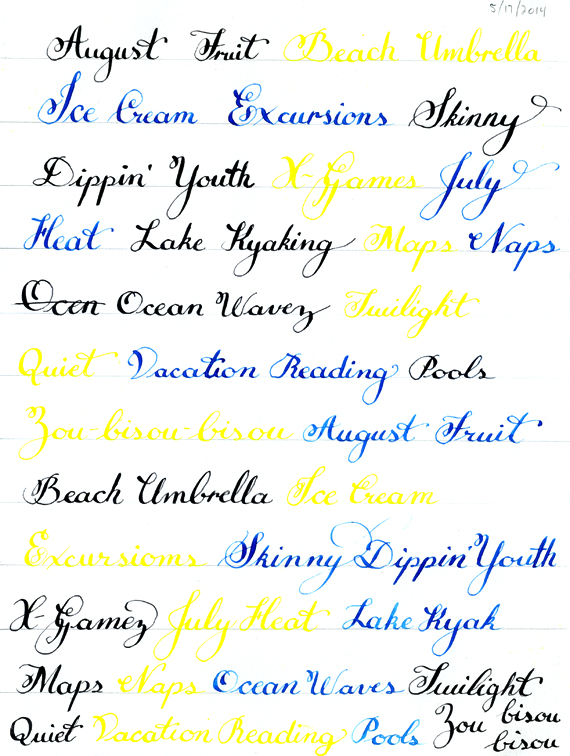 5/17/2014
August Fruit Beach Umbrella
Ice Cream Excursions Skinny
Dippin' Youth X-Games July
Heat Lake Kyaking Maps Naps
Ocen Ocean Wavez Twilight
Quiet Vacation Reading Pools
Zou-bisou-bisou August Fruit
Beach Umbrella Ice Cream
Excursioms Skinny Dippin' Youth
X-Gamez July Heat Lake Kyak
Maps Naps Ocean Waves Twilight
Quiet Vacation Reading Pools Zou bisou
bisou